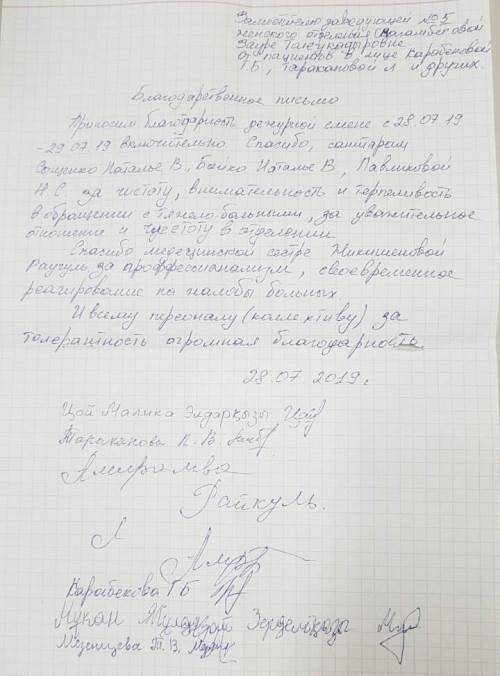 Заместителю заведующей №5
женского отделения Магамбетовой
Зауре Танужадыровне
от пациентов в лице Карабековой
Т.Б., Таракановой Л. и других.
Благодарственное письмо
Приносим благодарность дежурной смене с 28.07.19
-29.07.19 включительно. Спасибо, санитарам
Наталье В., Бойко Наталье В., Павликовой
Н.С. за чистоту, внимательность и терпеливость
в обращении с тяжело-больными, за уважительное
отношение и чистоту в отделении
Спасибо медецинской сестре Жикишеновой
Раугуль, за проффесианализм, своевременное
реагирование на жалобы больных
И всему персоналу (каллективу) за
толерантность огромная благодарность
28.07 2019г
Цой Малика Элдарқызы Цой
Тараканова Л.В.
Райкуль.
Карабекова Т.Б
Мукан
Мезенцева Т.В.